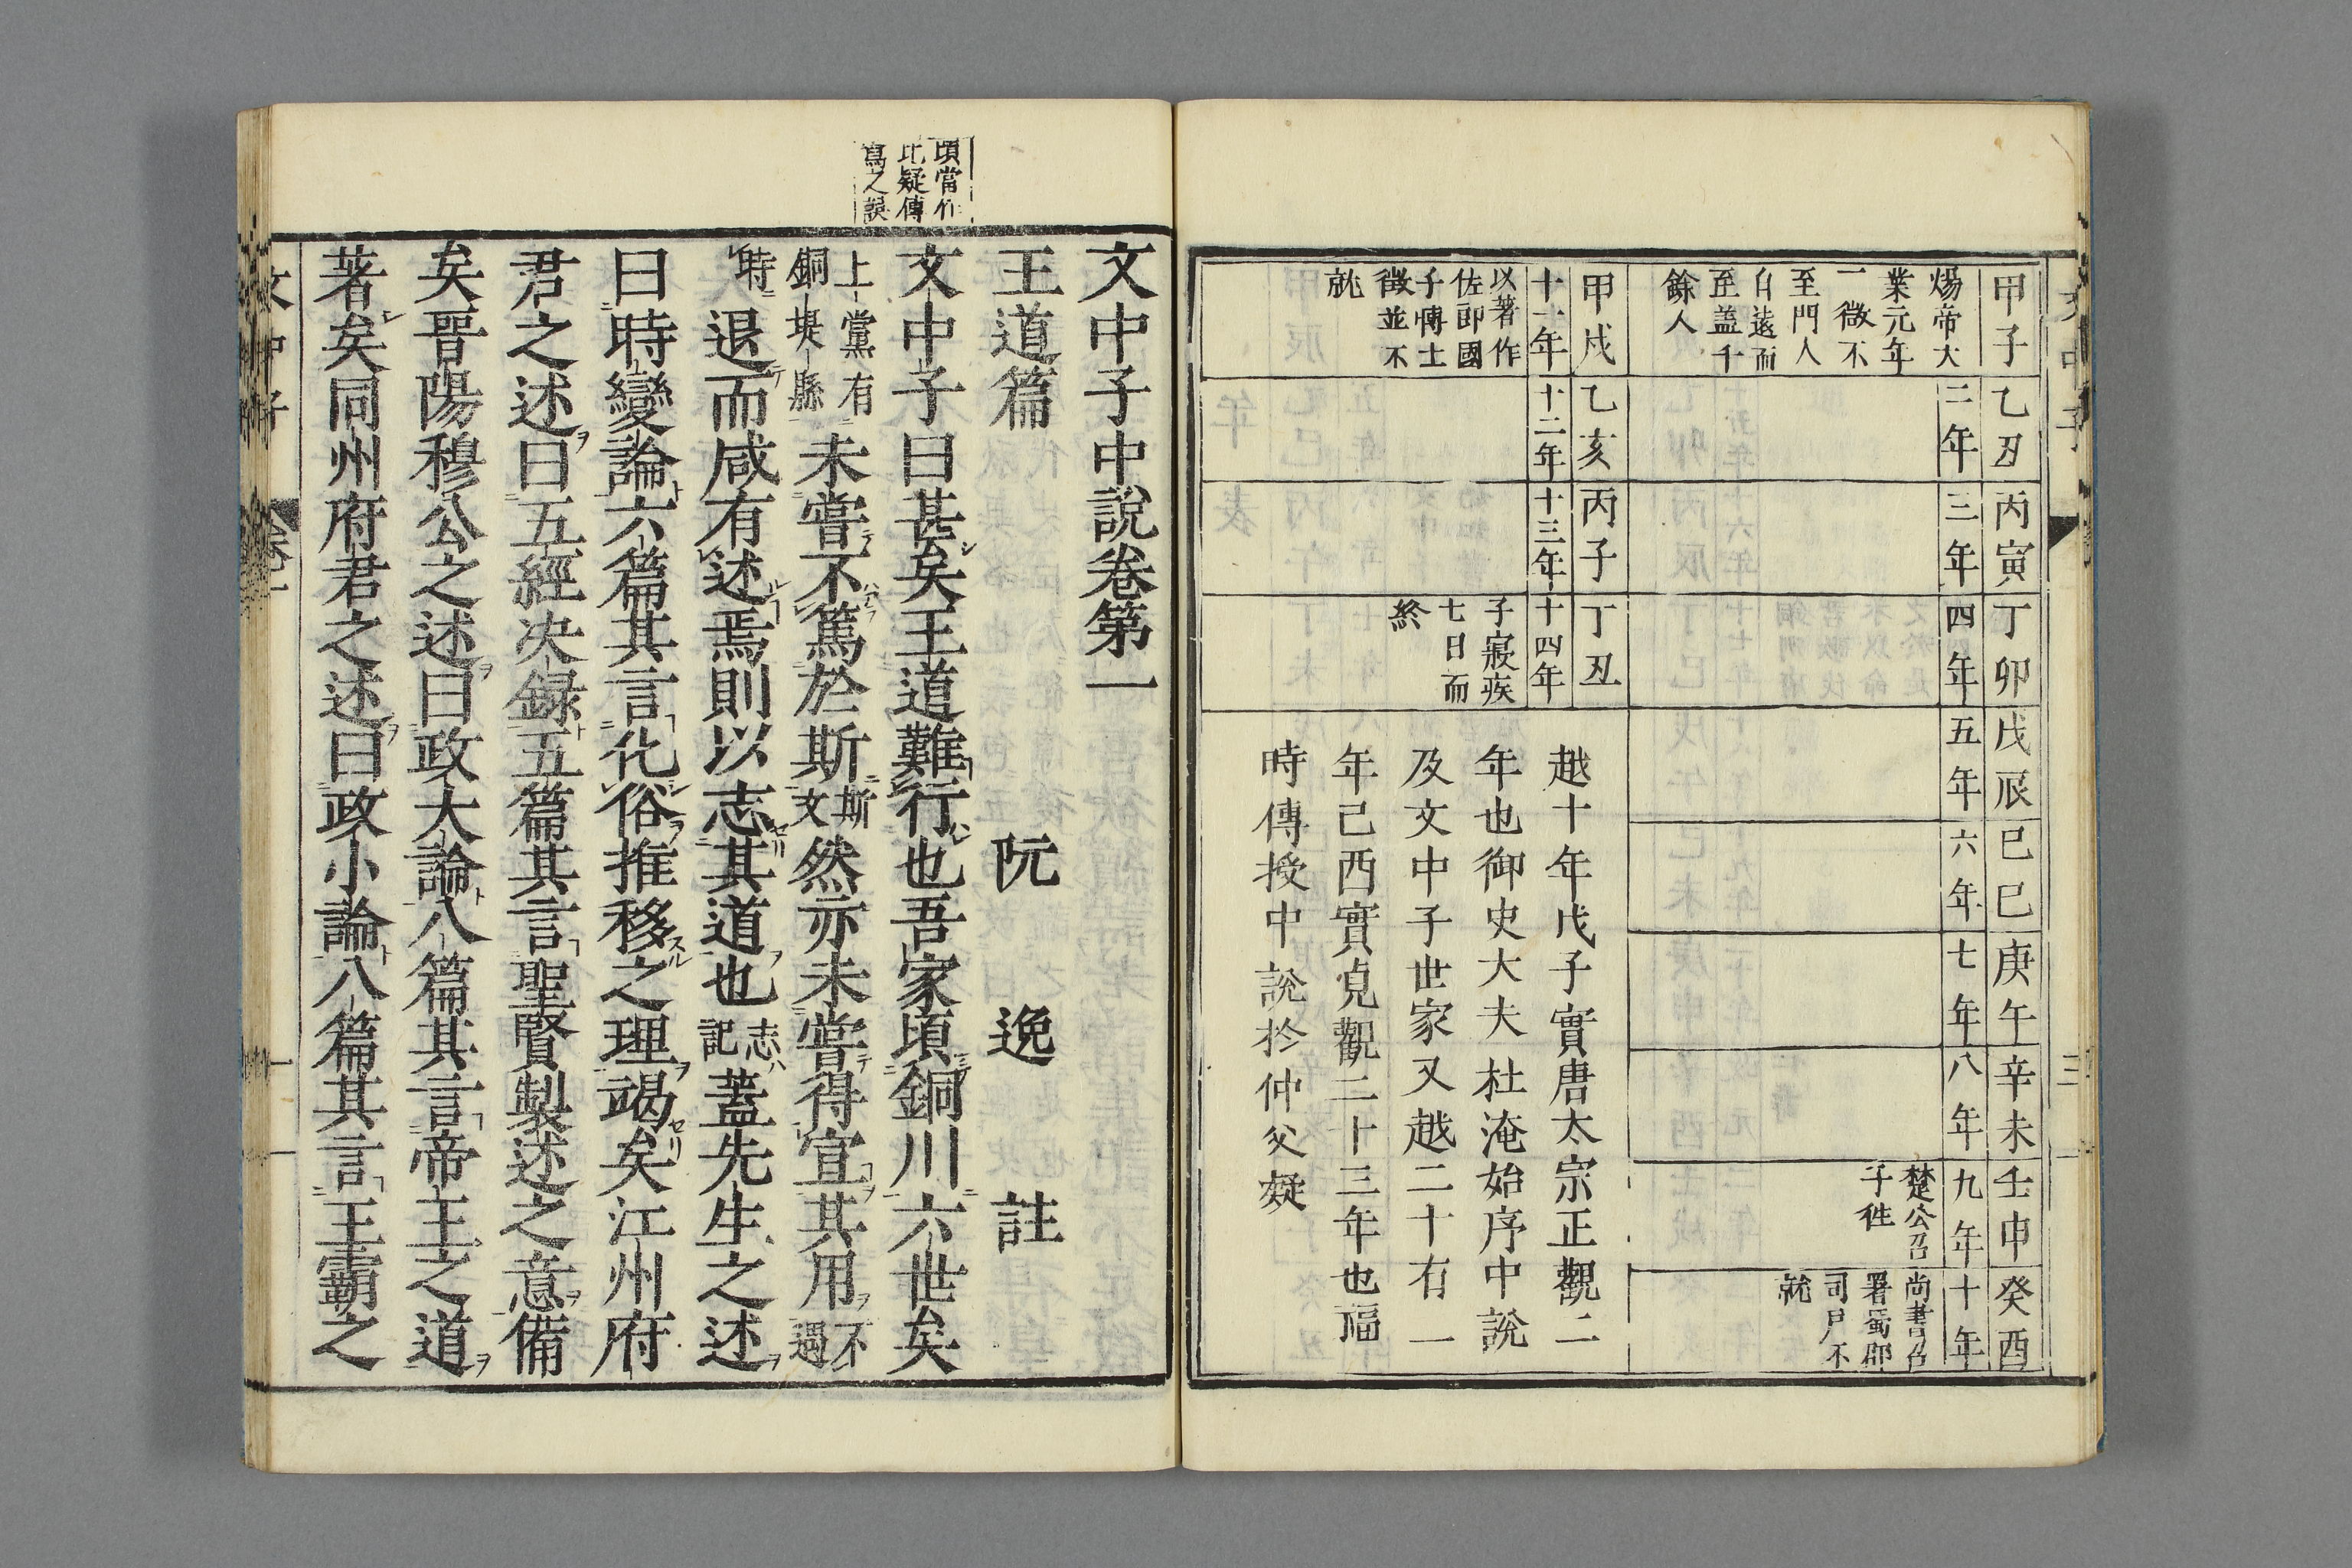 甲子 乙丑 丙寅 丁卯 戊辰 己巳 庚午 辛未 壬申 癸酉
煬帝大
業元年
一徴不
至門人
自遠而
至盖千
餘人
二年
三年
四年
五年
六年
七年
八年
九年
楚公召
子徃
十年
尚書召
署蜀郡
司戸不
就
甲戌 乙亥 丙子 丁丑
十一年
以著作
佐郎國
子博士
徴並不
就
十二年
十三年
十四年
子寢疾
七日而
終
越十年戊子實唐太宗正觀二
年也御史大夫杜淹始序中説
及文中子世家又越二十有一
年己酉實貞觀二十三年也福
時傳授中説於仲父凝
文中子中說卷第一
王道篇 阮逸註
頃當作
比疑傳
寫之誤
文中子曰甚矣王道難行也吾家頃銅川六世矣
上黨有
銅堤縣
未嘗不篤於斯
斯
文
然亦未嘗得宣其用
不
遇
時
退而咸有述焉則以志其道也
志
記
蓋先生之述
曰時變論六篇其言化俗推移之理竭矣江州府
君之述曰五經决録五篇其言聖賢製述之意備
矣晋陽穆公之述曰政大論八篇其言帝王之道
著矣同州府君之述曰政小論八篇其言王霸之